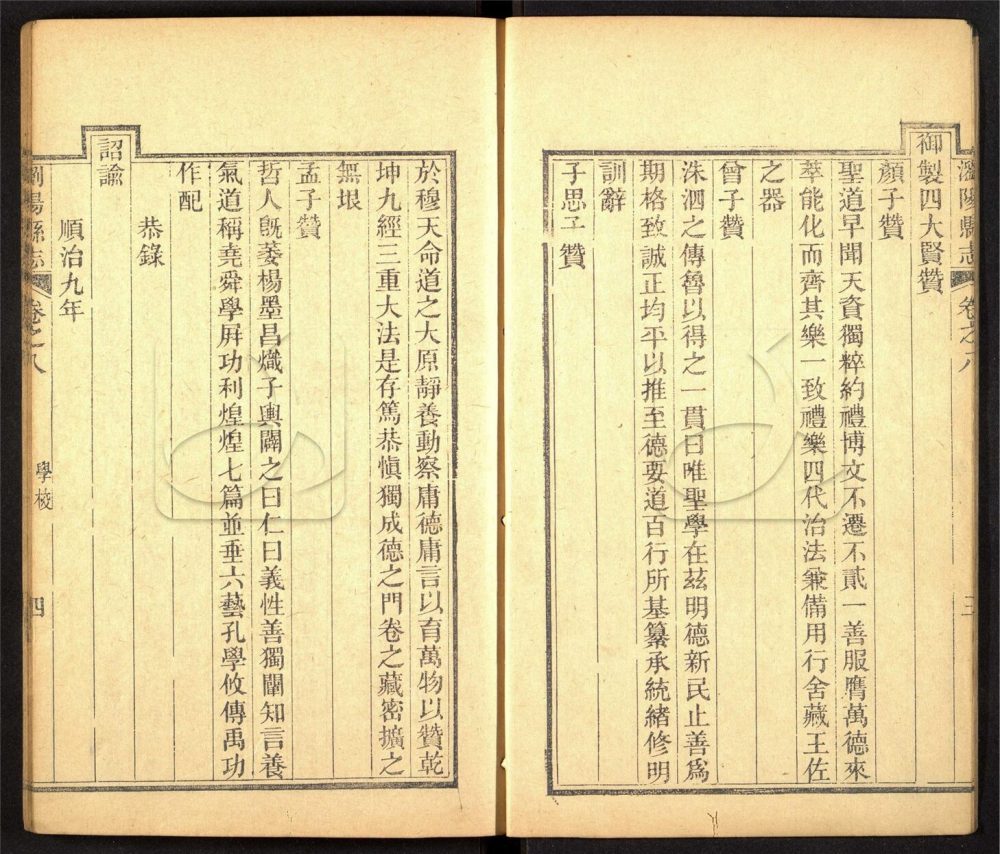 瀏陽縣志 卷之八 三
御製四大賢贊
顏子贊
聖道早聞天資獨粹約禮博文不遷不貳一善服膺萬德來
萃能化而齊其樂一致禮樂四代治法兼備用行舍藏王佐
之器
曾子贊
洙泗之傳魯以得之一貫曰唯聖學在茲明德新民止善爲
期格致誠正均平以推至德要道百行所基纂承統緒修明
訓辭
子思子贊
於穆天命道之大原靜養動察庸德庸言以育萬物以贊乾
坤九經三重大法是存篤恭愼獨成德之門卷之藏密擴之
無垠
孟子贊
哲人旣萎楊墨昌熾子輿闢之曰仁曰義性善獨闡知言養
氣道稱堯舜學屛功利煌煌七篇並垂六藝孔學攸傳禹功
作配
恭錄
詔諭
順治九年
瀏陽縣志 卷之八 學校 四